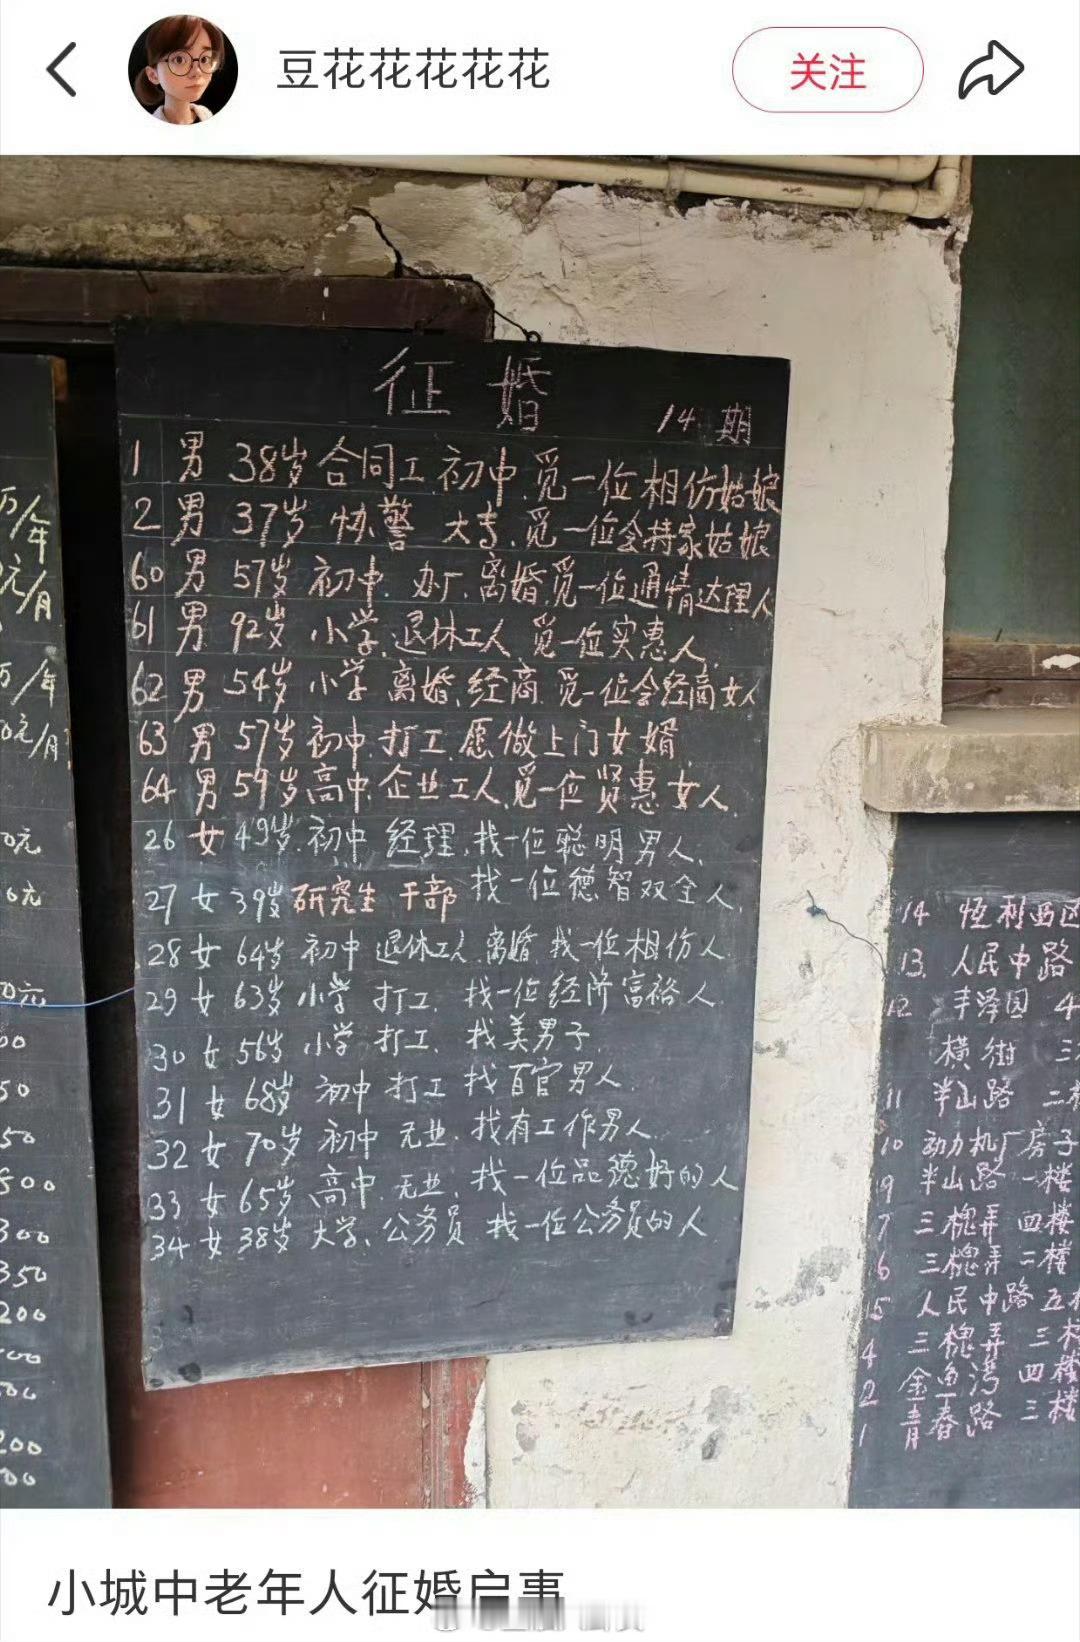 豆花花花花花
关注
征婚
14期
1 男 38岁 合同工.初中.觅一位相仿姑娘
2 男 37岁 协警 大专.觅一位会持家姑娘
60 男 57岁 初中.办厂.离婚.觅一位通情达理人
61 男 92岁 小学.退休工人.觅一位实惠人.
62 男 54岁 小学 离婚.经商.觅一位会经商女人
63 男 57岁 初中.打工.愿做上门女婿
64 男 59岁 高中.企业工人.觅一位贤惠女人.
26 女 49岁.初中 经理.找一位聪明男人.
27 女 39岁 研究生 干部 找一位德智双全人.
28 女 64岁 初中 退休工人 离婚.找一位相仿人
29 女 63岁 小学 打工.找一位经济富裕人
30 女 56岁 小学 打工.找美男子
31 女 68岁 初中 打工 找百官男人.
32 女 70岁 初中 无业.找有工作男人
33 女 65岁 高中.无业.找一位品德好的人
34 女 38岁 大学、公务员 找一位公务员的人
万/年
元/月
万/年
0元/月
0元
0元
0元
00
50
50
500
300
350
200
00
00
200
00
14 恒利西区
13. 人民中路
12 丰泽园 4
横街 三
11 半山路 二楼
10 动力机厂房子
9 半山路 一楼
7 三槐弄 四楼
6 三槐弄 二楼
5 人民中路 五楼
4 三槐弄 三楼
2 金鱼湾 四楼
1 青春路 三楼
小城中老年人征婚启事